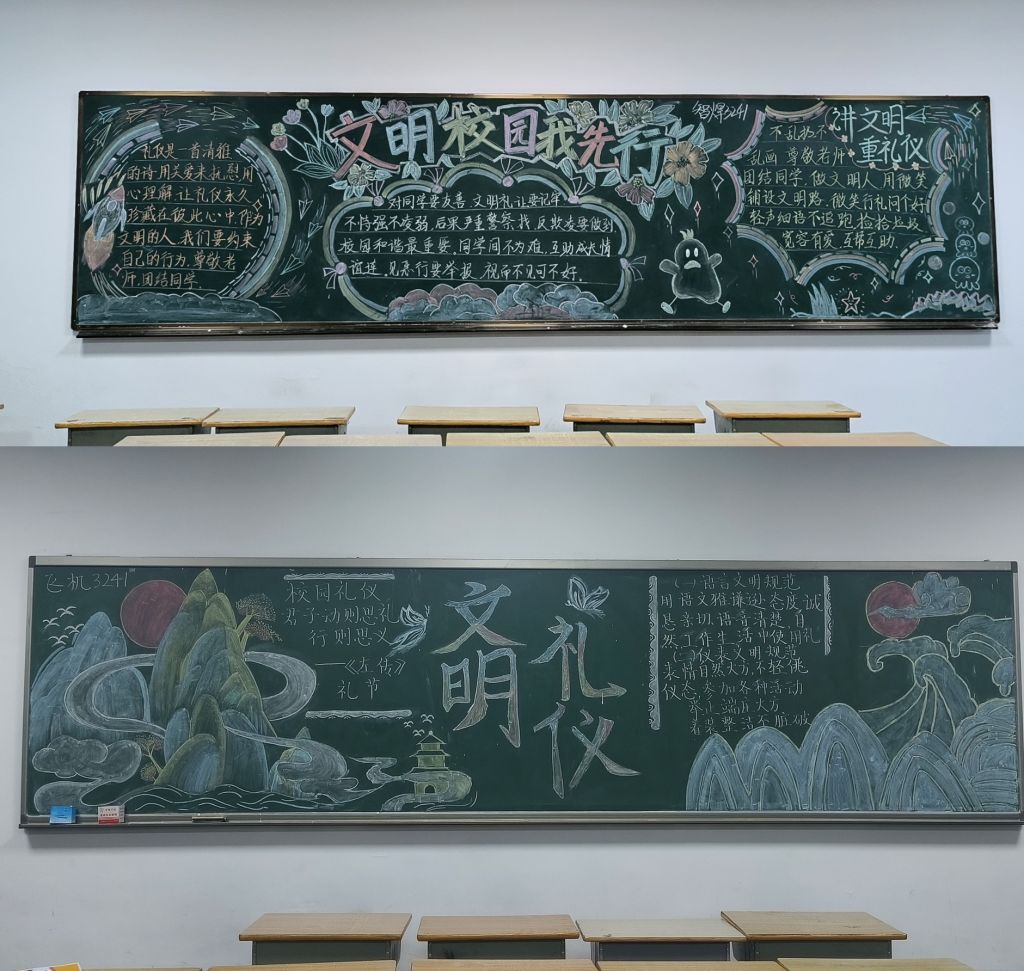 文明校园我先行
智焊3241
礼仪是一首清雅
的诗用关爱来抚慰用
心理解,让礼仪永久
珍藏在彼此心中作为
文明的人.我们要约束
自己的行为,尊敬老
师.团结同学
对同学要友善.文明礼让要记牢
不恃强不凌弱.后果严重警察找.反欺凌要做到
校园和谐最重要.同学间不为难.互助成长情
谊连.见恶行要举报.视而不见可不好.
讲文明
重礼仪
不乱扔不
乱画 尊敬老师
团结同学.做文明人.用微笑
铺设文明路.微笑行礼问个好
轻声细语不追跑.捡捡垃圾
宽容有爱.互帮互助.
飞机3241
校园礼仪
君子动则思礼
行则思义
——《左传》
礼节
文明
礼仪
(一)语言文明规范
用语文雅谦逊.态度诚
恳亲切.语音清楚.自
然.工作生活中使用礼
(二)仪表文明规范
表情自然大方.不轻佻
仪态.参加各种活动
端庄大方
着装整洁不脏破